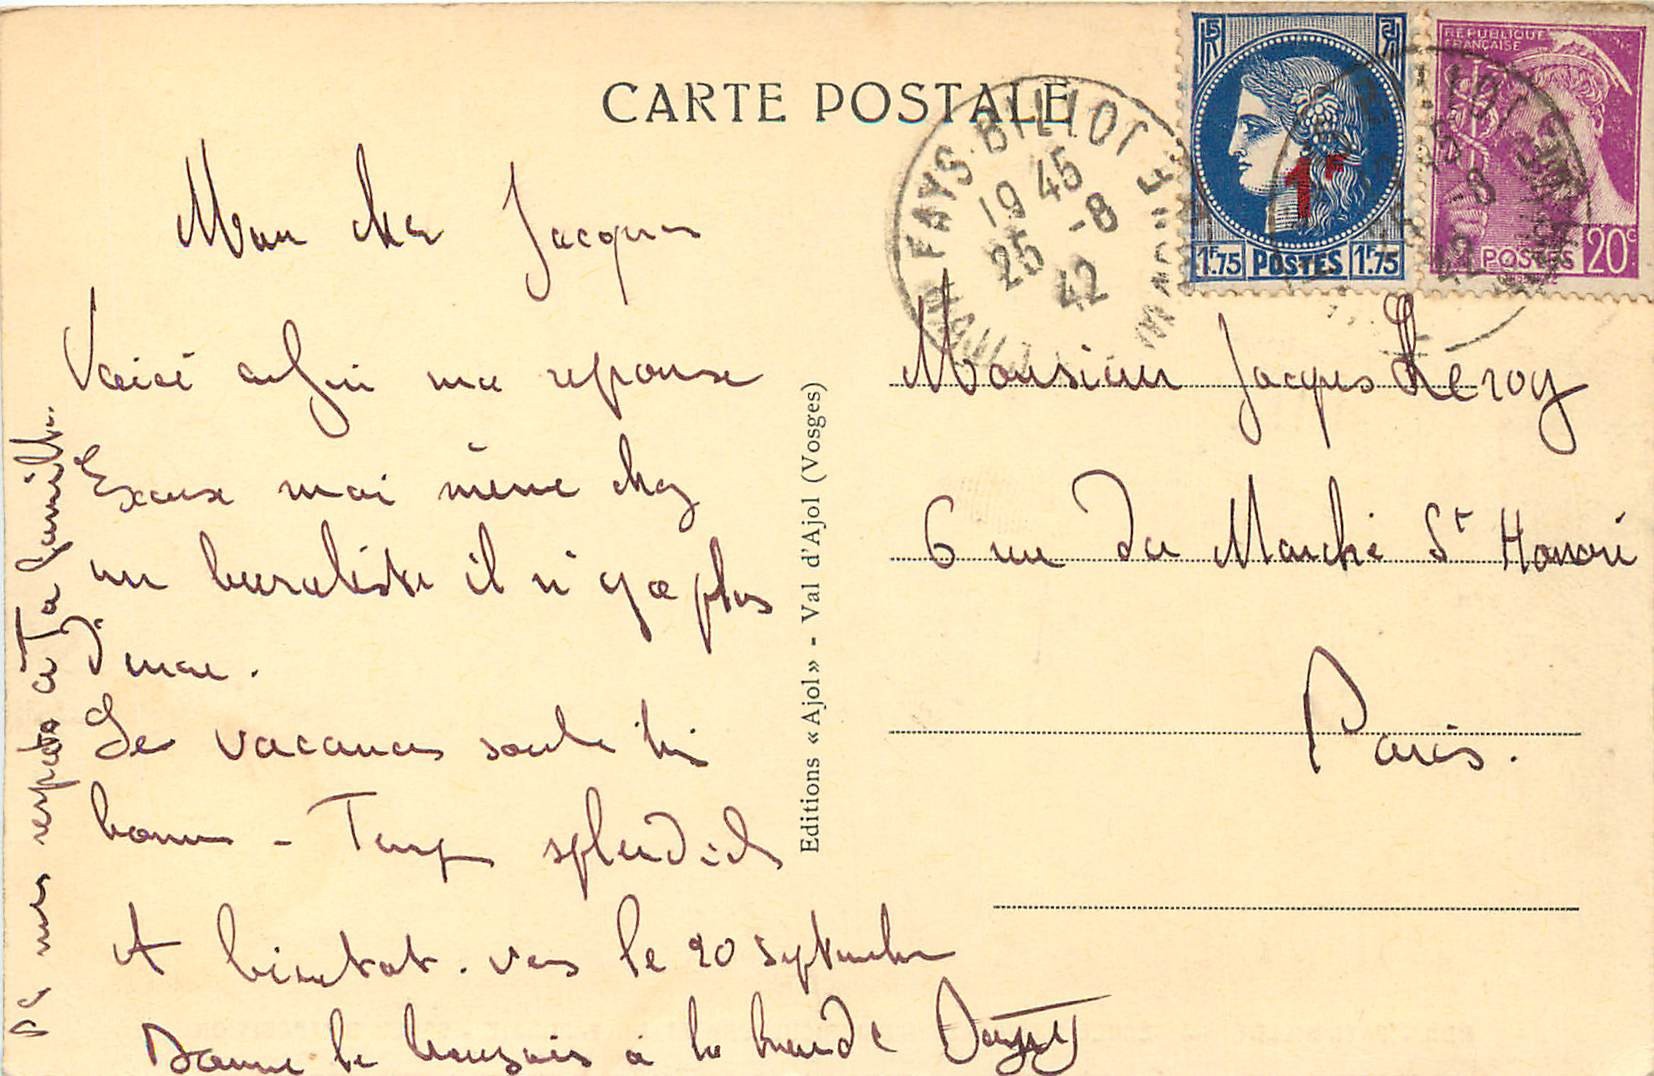 CARTE POSTALE
RF
RF
1F
1F.75 POSTES 1F.75
REPUBLIQUE
FRANÇAISE
POSTES 20c
FAYS-BILLOT
19 45
25 -8
42
HAUTE MARNE
Mon cher Jacques
Voici enfin ma reponse
Excuse moi même chez
un buraliste il n'y a plus
d'encre.
Les vacances sont très
bonnes - Temps splendide
A bientot. vers le 20 septembre
Donne le bonjour à la bande
Mes respects à Ta famille.
Editions «Ajol» - Val d'Ajol (Vosges)
Monsieur Jacques Leroy
6 rue du Marché St Honoré
Paris.